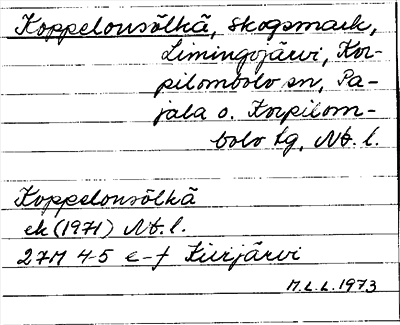 Koppelonsölkä, skogsmark,
Limingojärvi, Kor-
pilombolo sn, Pa-
jala o. Korpilom-
bolo tg, Nb. l.
Koppelonsölkä
ek (1971) Nb. l.
27M 4-5 e-f Kiirjärvi
M.L.L. 1973